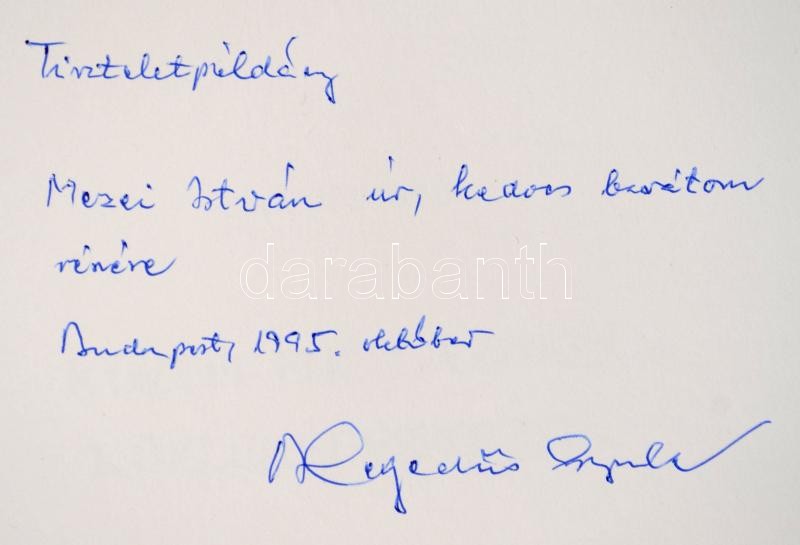 Tiszteletpéldány
Mezei István úr, kedves barátom
részére
darabanth
Budapest, 1995. október
Hegedűs Gyula